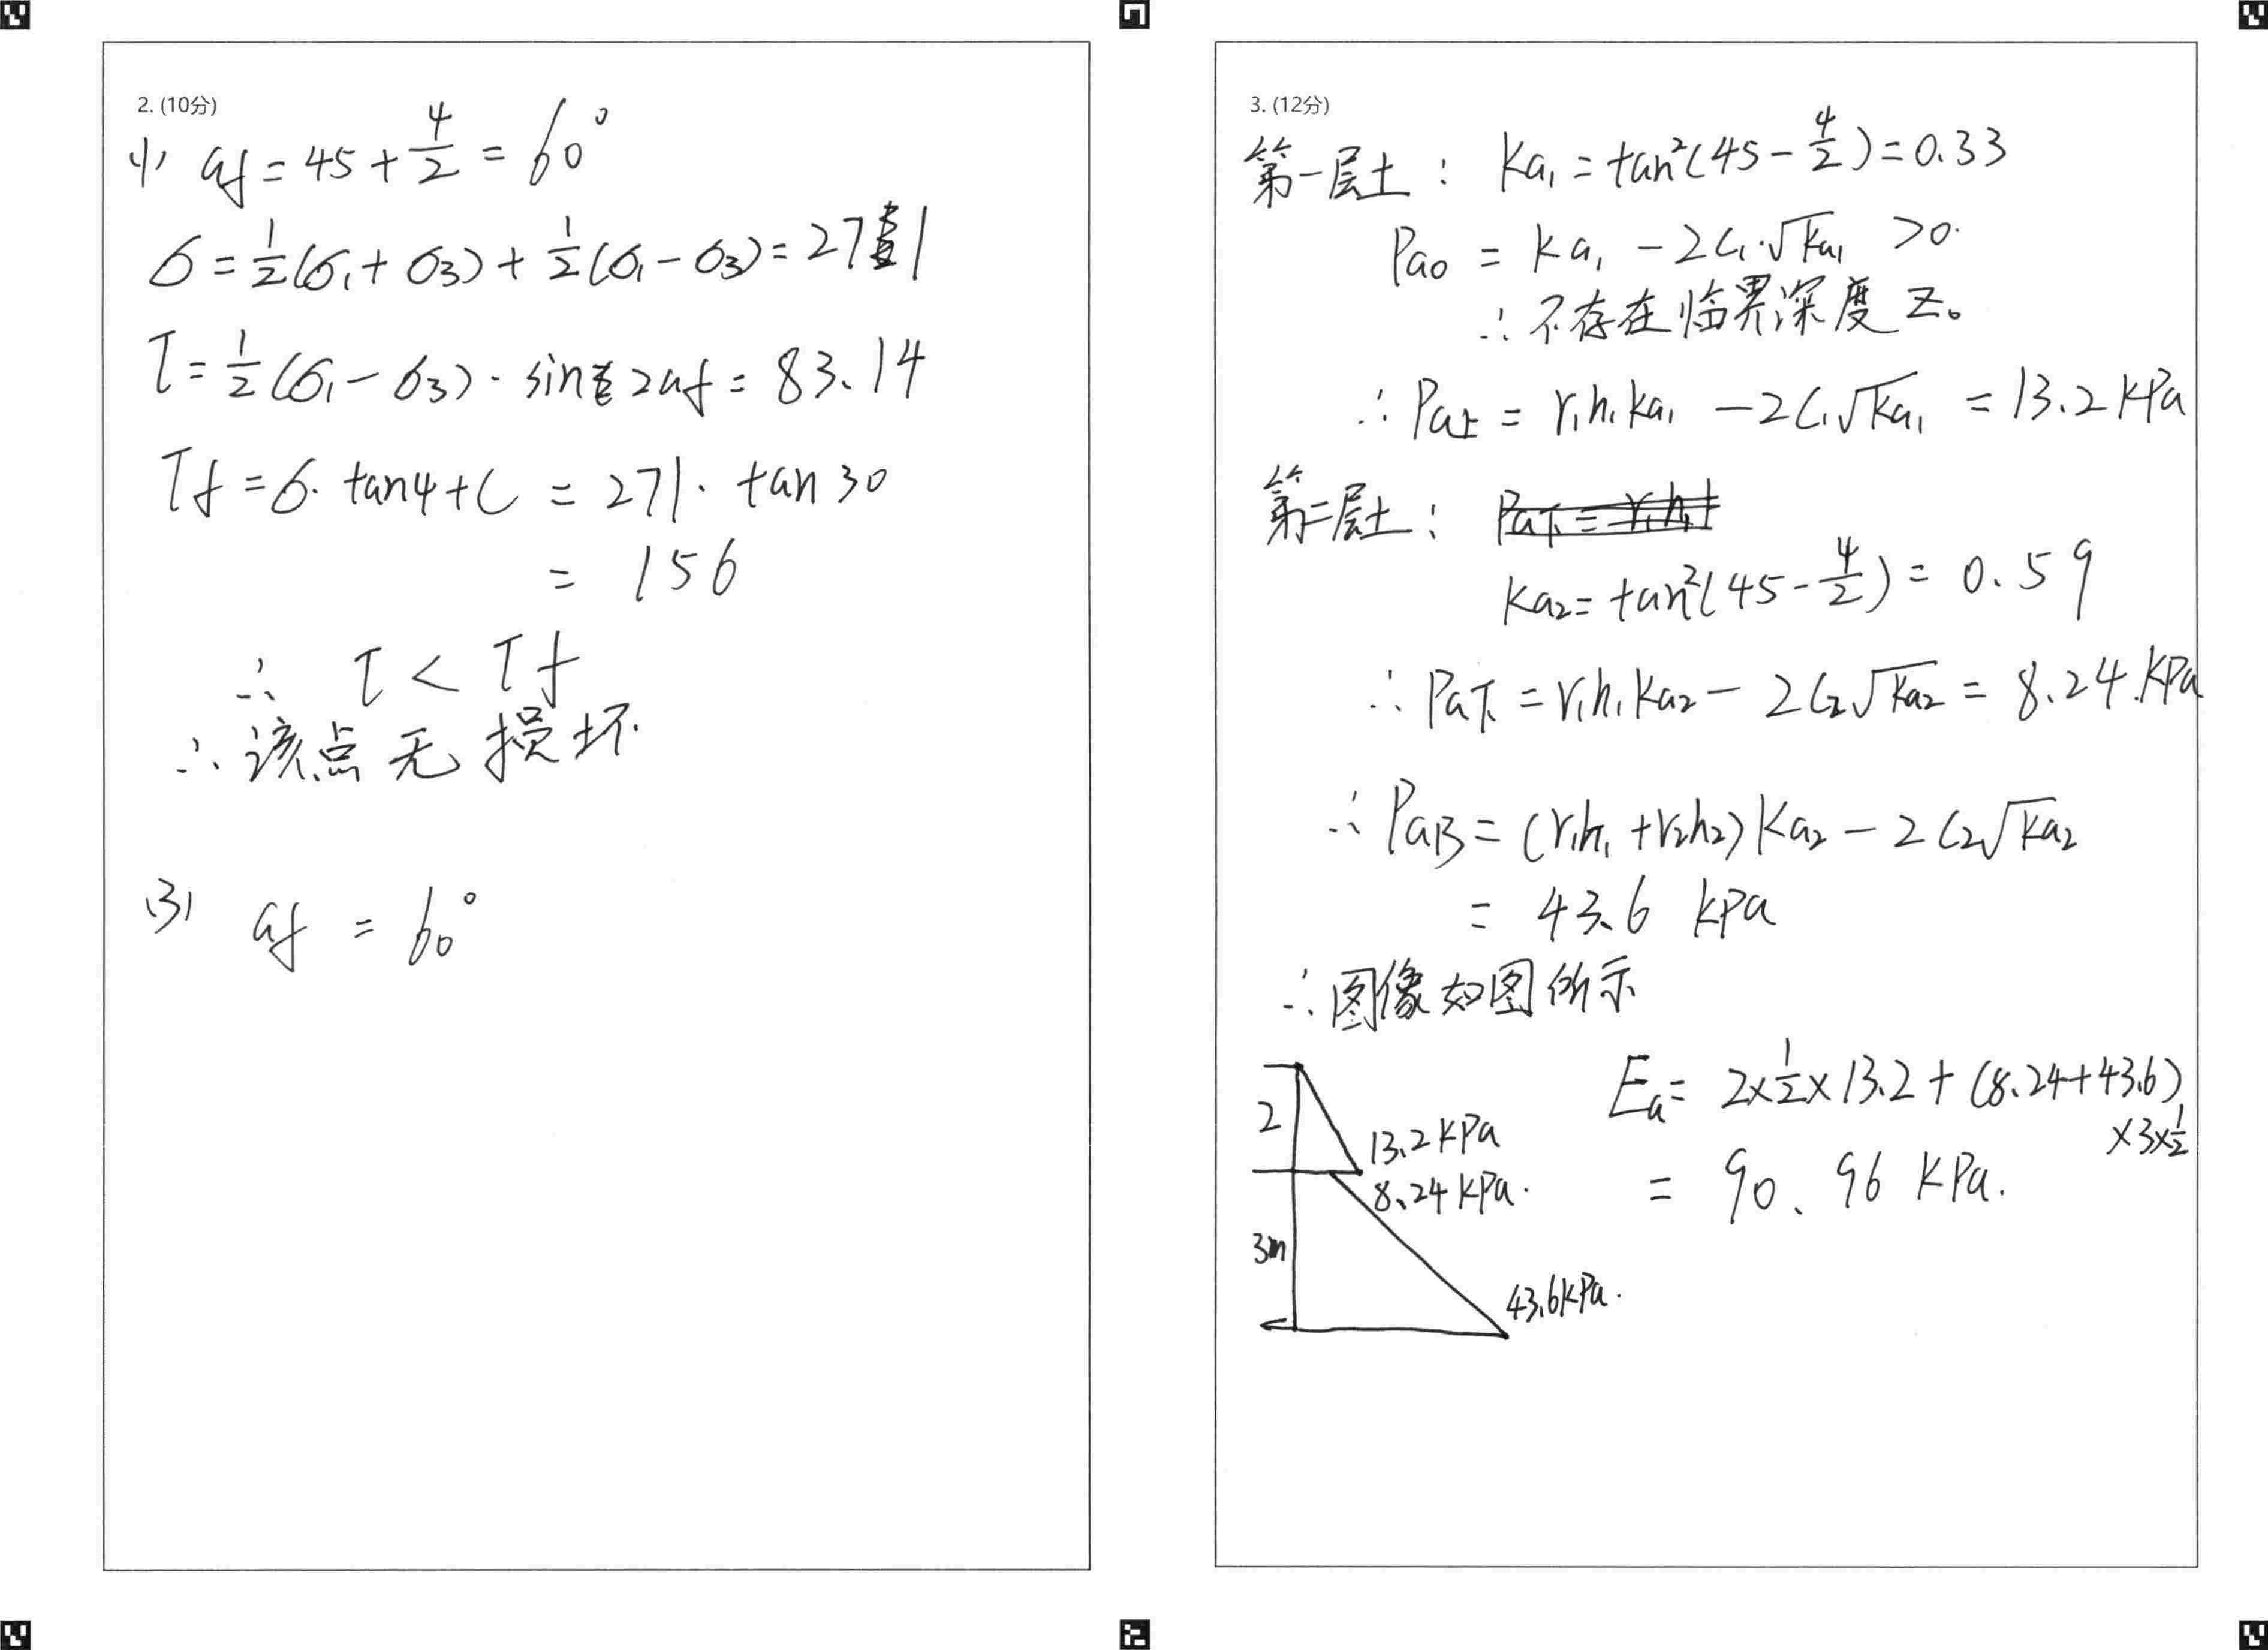 2. (10分)
(1) af = 45 + φ/2 = 60°
σ = 1/2(σ₁ + σ₃) + 1/2(σ₁ - σ₃) = 271
τ = 1/2(σ₁ - σ₃) · sin 2af = 83.14
τf = σ · tanφ + C = 271 · tan 30
= 156
∴ τ < τf
∴ 该点无损坏.
(3) af = 60°
3. (12分)
第一层土: Ka₁ = tan²(45 - φ/2) = 0.33
Pa0 = Ka₁ - 2C₁·√Ka₁ >0.
∴ 不存在临界深度 Z₀
∴ Pa上 = r₁h₁ka₁ - 2C₁√ka₁ = 13.2 kPa
第二层土:
Ka₂ = tan²(45 - φ/2) = 0.59
∴ Pa下 = r₁h₁Ka₂ - 2C₂√Ka₂ = 8.24.kPa
∴ PaB = (r₁h₁ + r₂h₂)Ka₂ - 2C₂√ka₂
= 43.6 kPa
∴ 图像如图所示
Ea = 2×1/2×13.2 + (8.24+43.6)
×3×1/2
= 90.96 KPa.
2
13.2 KPa
8.24 KPa.
3m
43.6KPa.